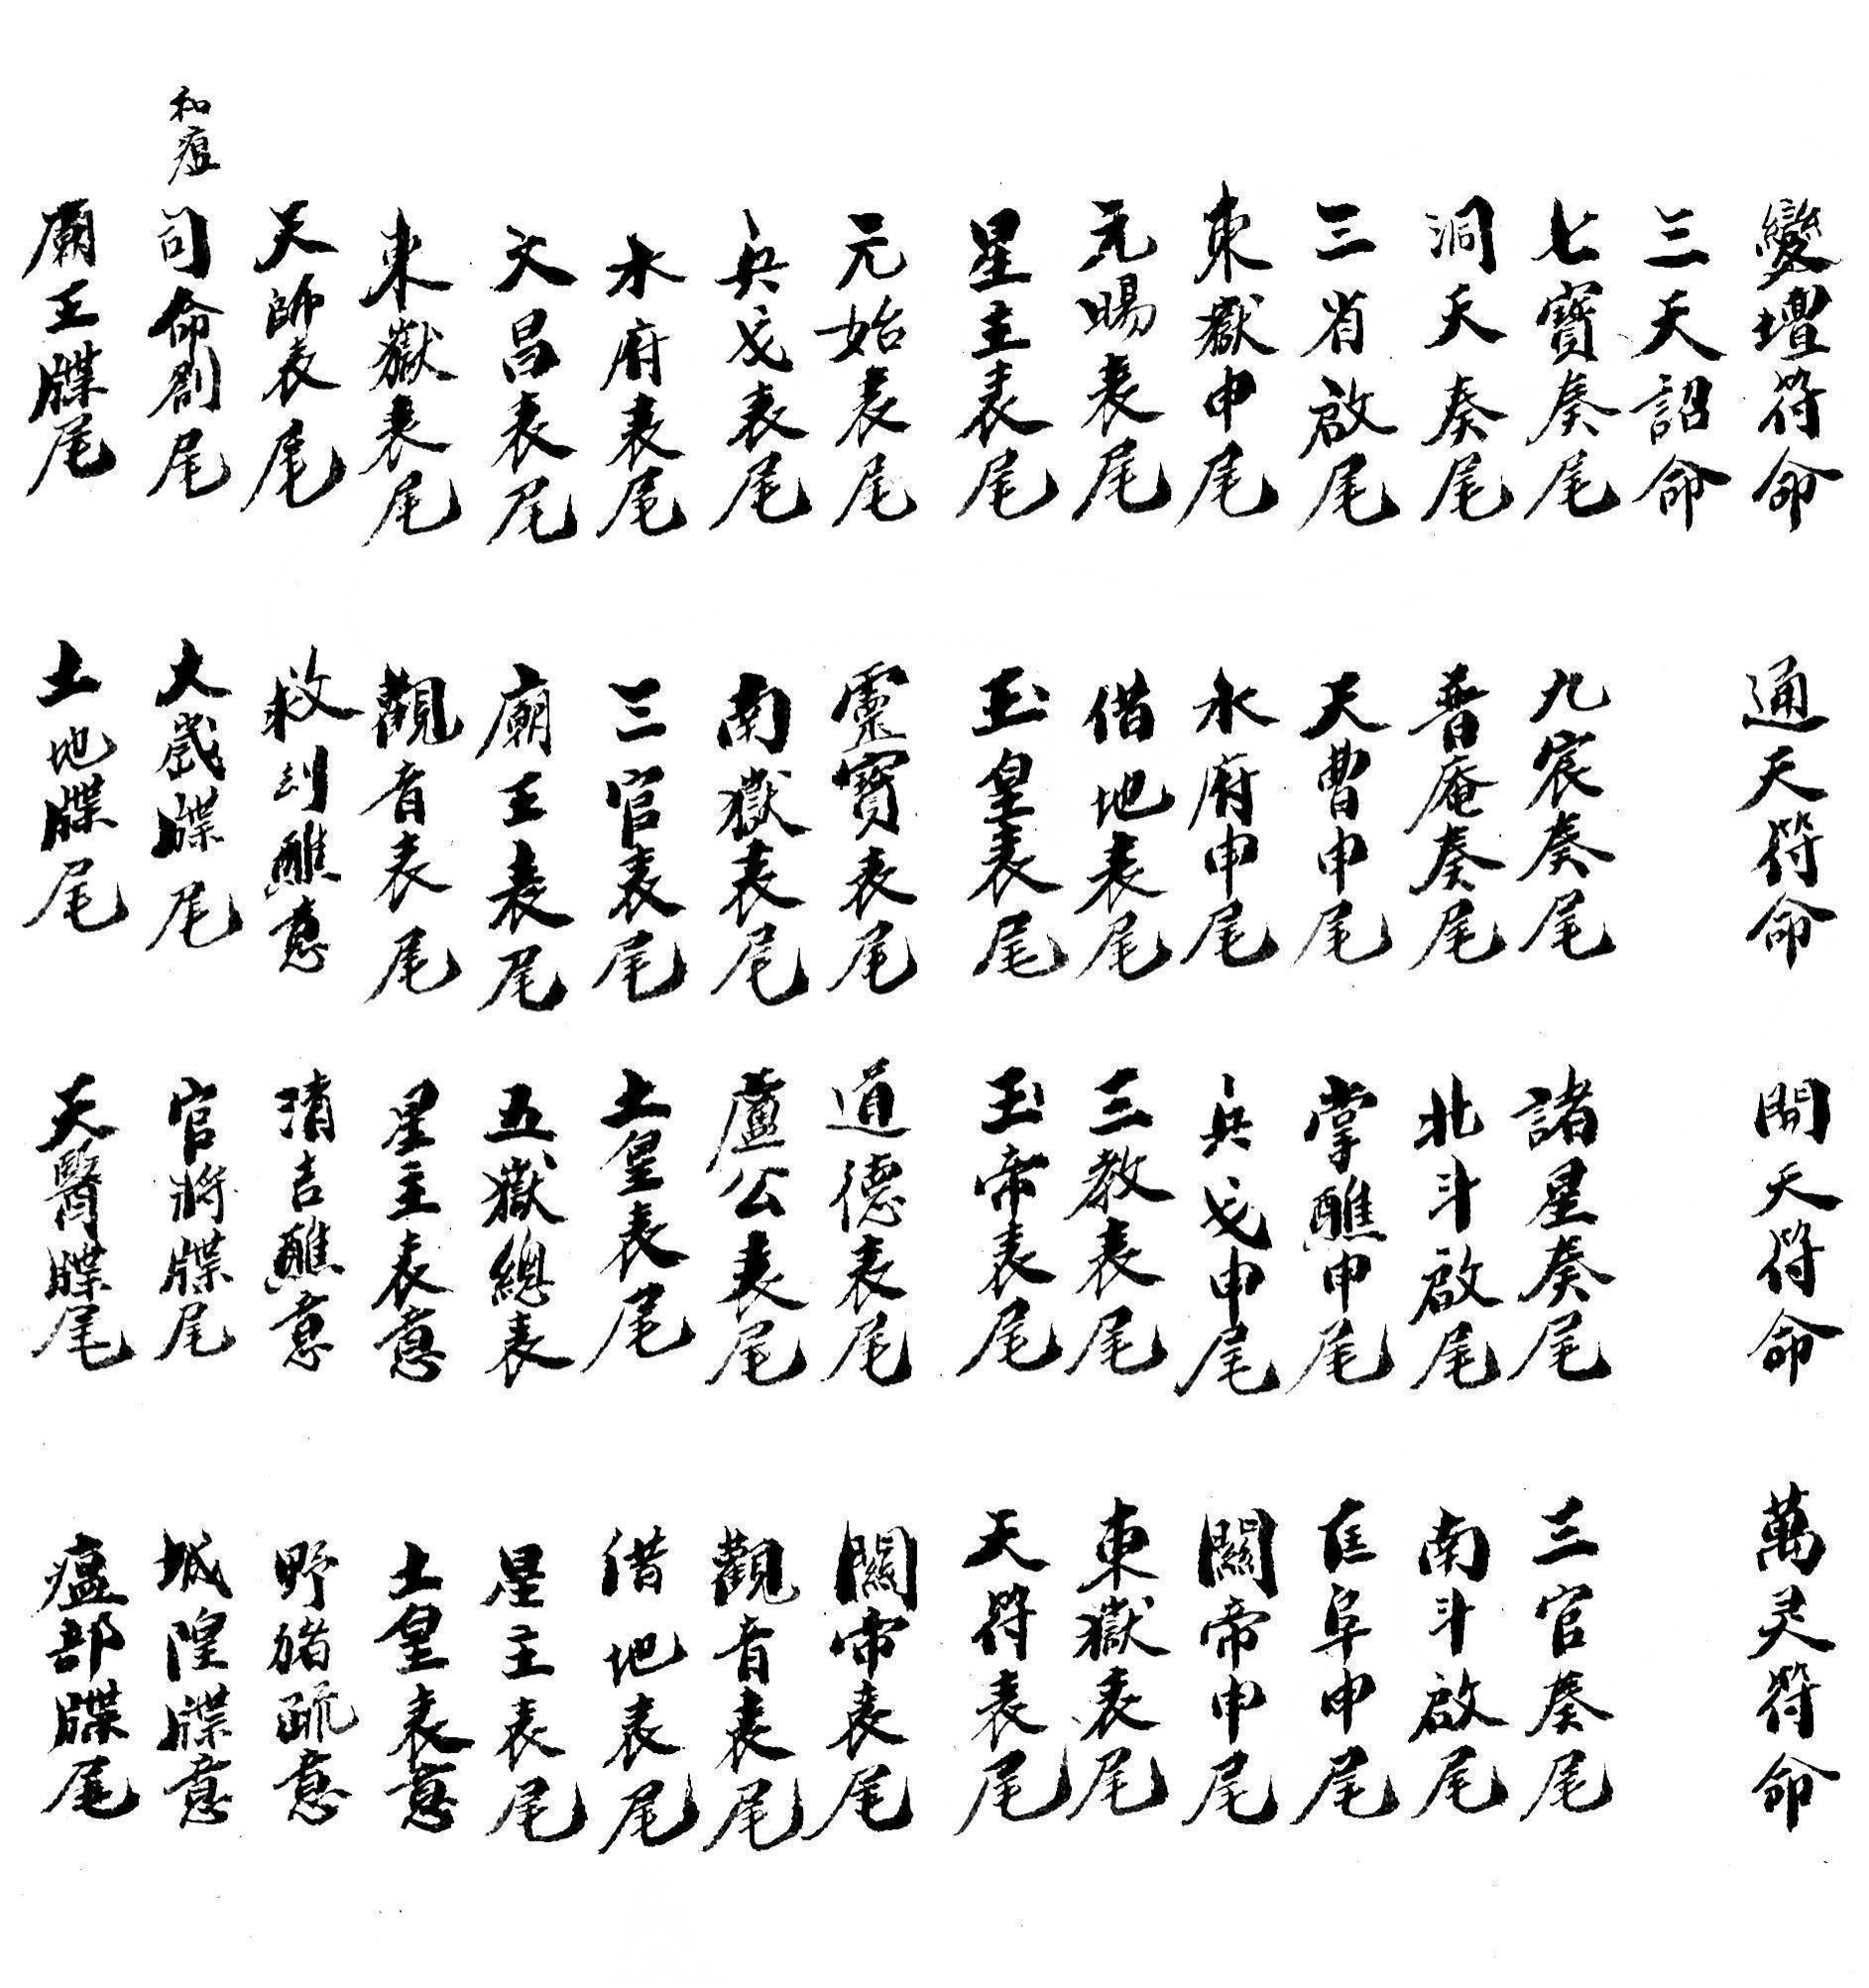 變壇符命　通天符命　開天符命　萬灵符命
三天詔命
七寶奏尾　九宸奏尾　諸星奏尾　三官奏尾
洞天奏尾　普庵奏尾　北斗啟尾　南斗啟尾
三省啟尾　天曹申尾　掌醮申尾　匡阜申尾
東嶽申尾　水府申尾　兵戈申尾　關帝申尾
元暘表尾　借地表尾　三教表尾　東嶽表尾
星主表尾　玉皇表尾　玉帝表尾　天符表尾
元始表尾　靈寶表尾　道德表尾　關帝表尾
兵戈表尾　南嶽表尾　盧公表尾　觀音表尾
水府表尾　三官表尾　土皇表尾　借地表尾
文昌表尾　廟王表尾　五嶽總表　星主表尾
東嶽表尾　觀音表尾　星主表意　土皇表意
天師表尾　救刬醮意　清吉醮意　野猪疏意
和瘟　司命劄尾　大歲牒尾　官將牒尾　城隍牒意
廟王牒尾　土地牒尾　天醫牒尾　瘟部牒尾